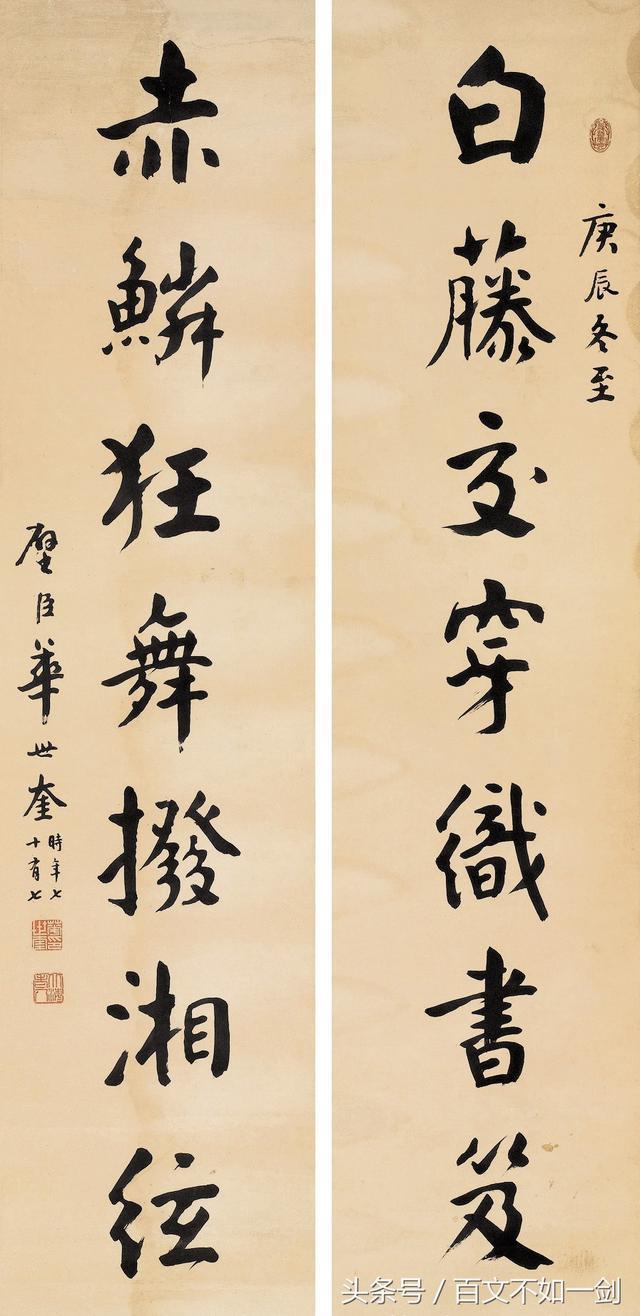 庚辰冬至
白藤交穿織書笈
赤鱗狂舞撥湘絃
璧臣華世奎
時年七
十有七
头条号 / 百文不如一剑